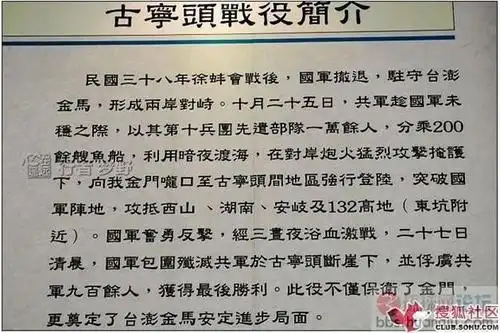 古寧頭戰役簡介
民國三十八年徐蚌會戰後，國軍撤退，駐守台澎
金馬，形成兩岸對峙。十月二十五日，共軍趁國軍未
穩之際，以其第十兵團先遣部隊一萬餘人，分乘200
餘艘魚船，利用暗夜渡海，在對岸炮火猛烈攻擊掩護
下，向我金門嚨口至古寧頭間地區強行登陸，突破國
軍陣地，攻抵西山、湖南、安岐及132高地（東坑附
近）。國軍奮勇反擊，經三晝夜浴血激戰，二十七日
清晨，國軍包圍殲滅共軍於古寧頭斷崖下，並俘虜共
軍九百餘人，獲得最後勝利。此役不僅保衛了金門，
更奠定了台澎金馬安定進步局面。
行者 罗野
搜狐社区
CLUB.SOHU.COM